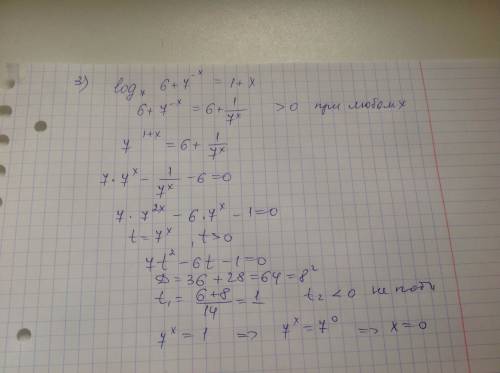 3) log₇ 6+7⁻ˣ = 1+x
6+7⁻ˣ = 6+1/7ˣ >0 при любом x
7¹⁺ˣ = 6+1/7ˣ
7·7ˣ − 1/7ˣ − 6=0
7·7²ˣ − 6·7ˣ − 1=0
t=7ˣ, t>0
7t² − 6t − 1=0
D=36+28=64=8²
t₁= (6+8)/14 = 1 t₂<0 не
7ˣ = 1 => 7ˣ=7⁰ => x=0